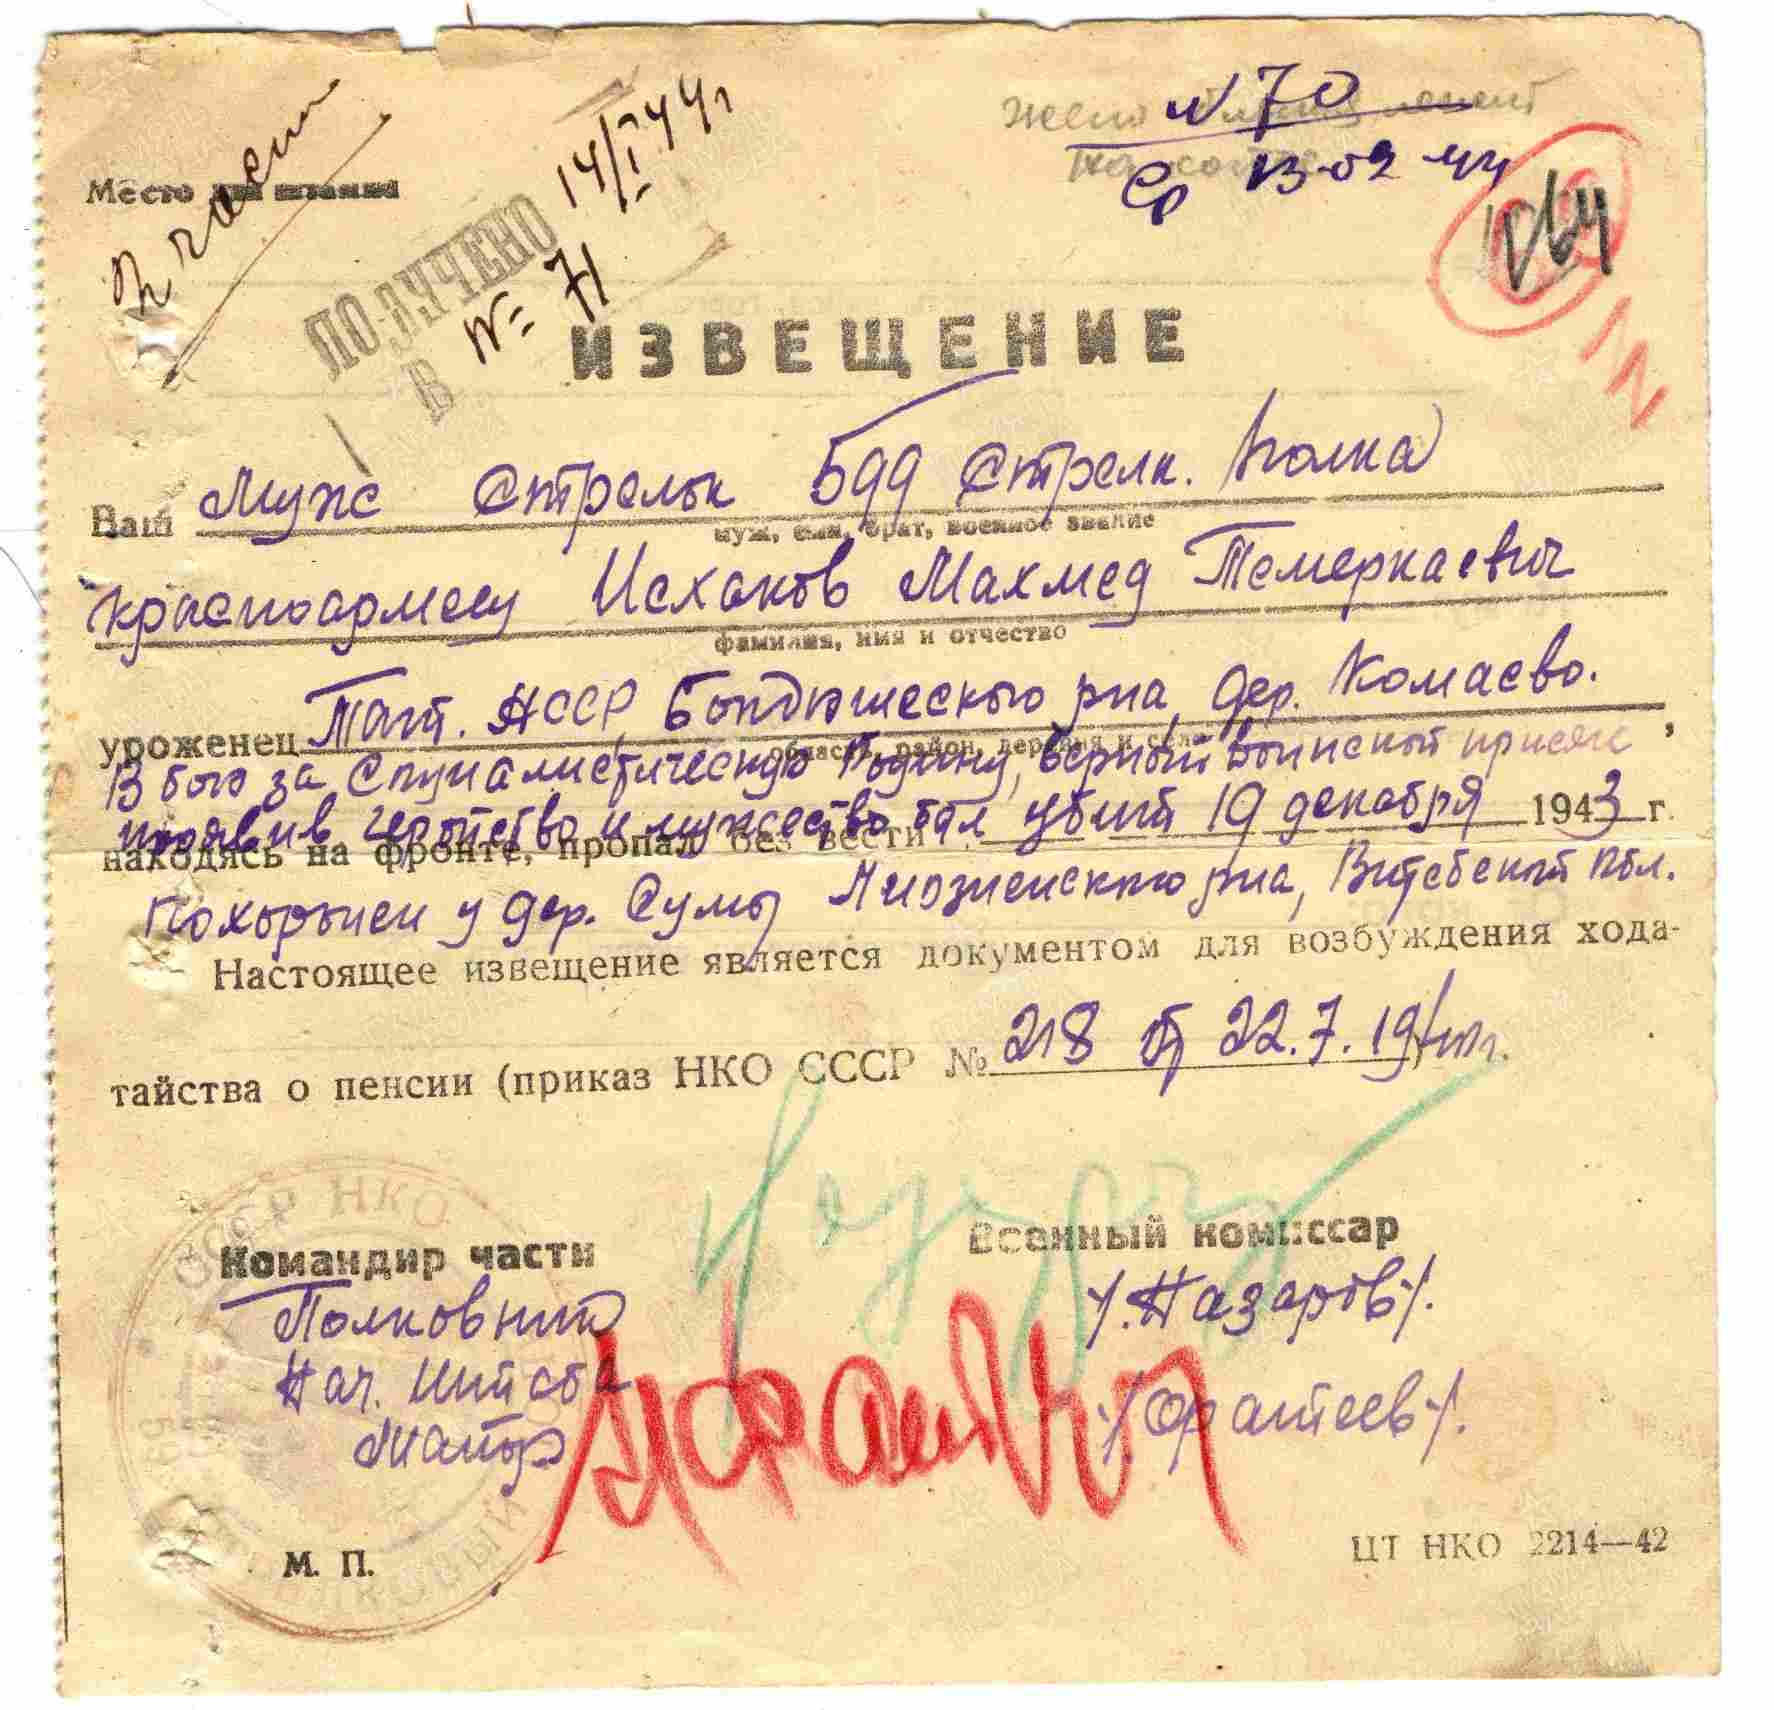 N 70
13.02 44
Место
14/I 44 г
ПОЛУЧЕНО
В № 71
1064
ИЗВЕЩЕНИЕ
Ваш Муж Стрелок 599 Стрелк. Полка
муж, сын, брат, военное звание
красноармеец Исхаков Махмед Темеркаевич
фамилия, имя и отчество
уроженец Тат. АССР, Бондюжского р-на, дер. Комаево.
область, район, деревня и село
В бою за Социалистическую Родину, верный воинской присяге,
проявив геройство и мужество был убит 19 декабря 1943 г.
находясь на фронте, пропал без вести
Похоронен у дер. Сумы Лиозненского р-на, Витебской обл.
Настоящее извещение является документом для возбуждения хода-
тайства о пенсии (приказ НКО СССР № 218 от 22.7.
СССР НКО
Командир части Военный комиссар
Полковник /. Назаров/.
Нач. Штаба
Майор /Фатеев/.
М. П.
ЦТ НКО 2214—42